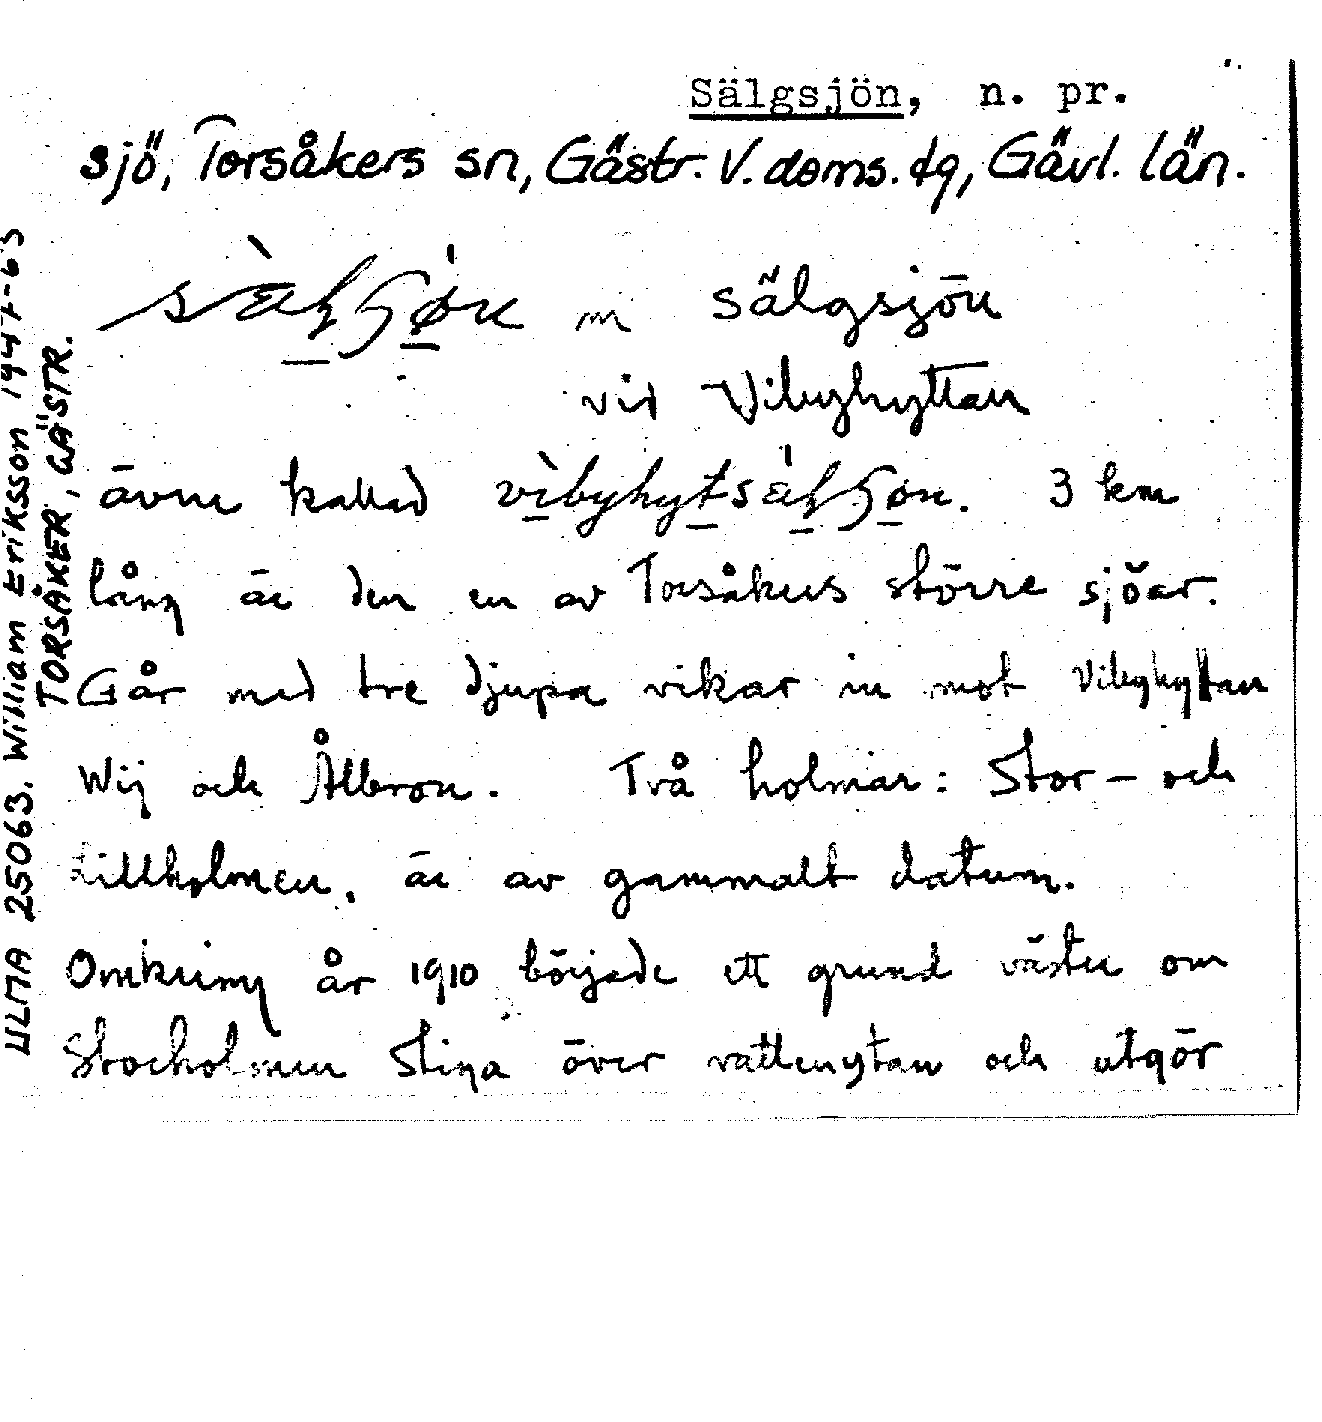 Sälgsjön, n. pr.
sjö, Torsåkers sn, Gästr. V. doms. tg, Gävl. län.
m Sälgsjön
vid Vibyhyttan
även kallad 3 km
lång är den en av Torsåkers större sjöar.
Går med tre djupa vikar in mot Vibyhyttan
Wij och Ålbron. Två holmar: Stor- och
Lillholmen, är av gammalt datum.
Omkring år 1910 började ett grund väster om
Storholmen stiga över vattenytan och utgör
ULMA 25063. William Eriksson 1947-63
TORSÅKER, GÄSTR.